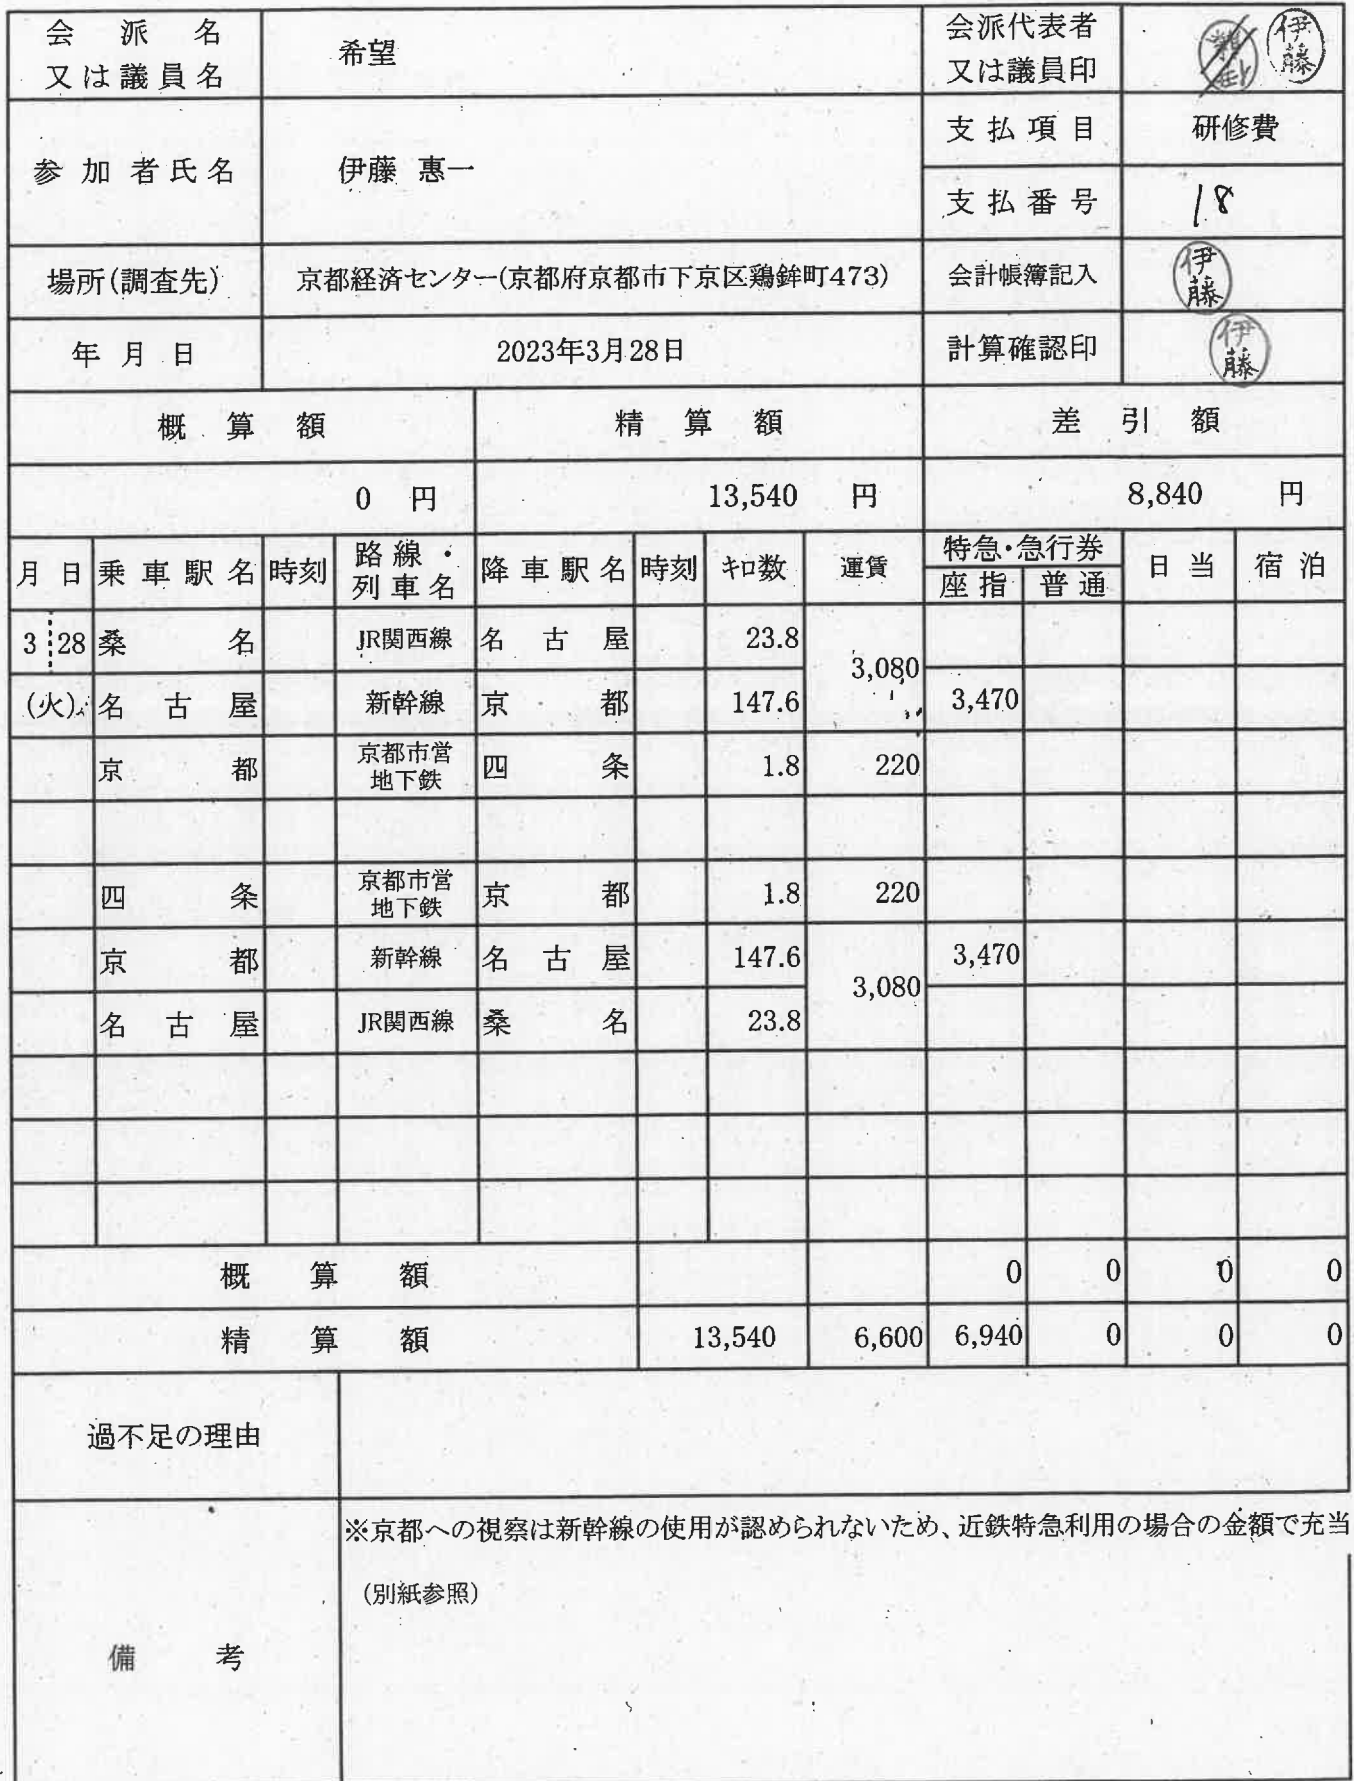 会派名
又は議員名
希望
会派代表者
又は議員印
伊藤
参加者氏名
伊藤 惠一
支払項目
研修費
支払番号
18
場所(調査先)
京都経済センター(京都府京都市下京区鶏鉾町473)
会計帳簿記入
伊藤
年月日
2023年3月28日
計算確認印
伊藤
概算額 精算額 差引額
0 円 13,540 円 8,840 円
月日 乗車駅名 時刻 路線・列車名 降車駅名 時刻 キロ数 運賃 特急・急行券 座指 普通 日当 宿泊
3 28 桑名 JR関西線 名古屋 23.8 3,080
(火) 名古屋 新幹線 京都 147.6 3,470
京都 京都市営地下鉄 四条 1.8 220
四条 京都市営地下鉄 京都 1.8 220
京都 新幹線 名古屋 147.6 3,080 3,470
名古屋 JR関西線 桑名 23.8
概算額 0 0 0 0
精算額 13,540 6,600 6,940 0 0 0
過不足の理由
備考
※京都への視察は新幹線の使用が認められないため、近鉄特急利用の場合の金額で充当
(別紙参照)